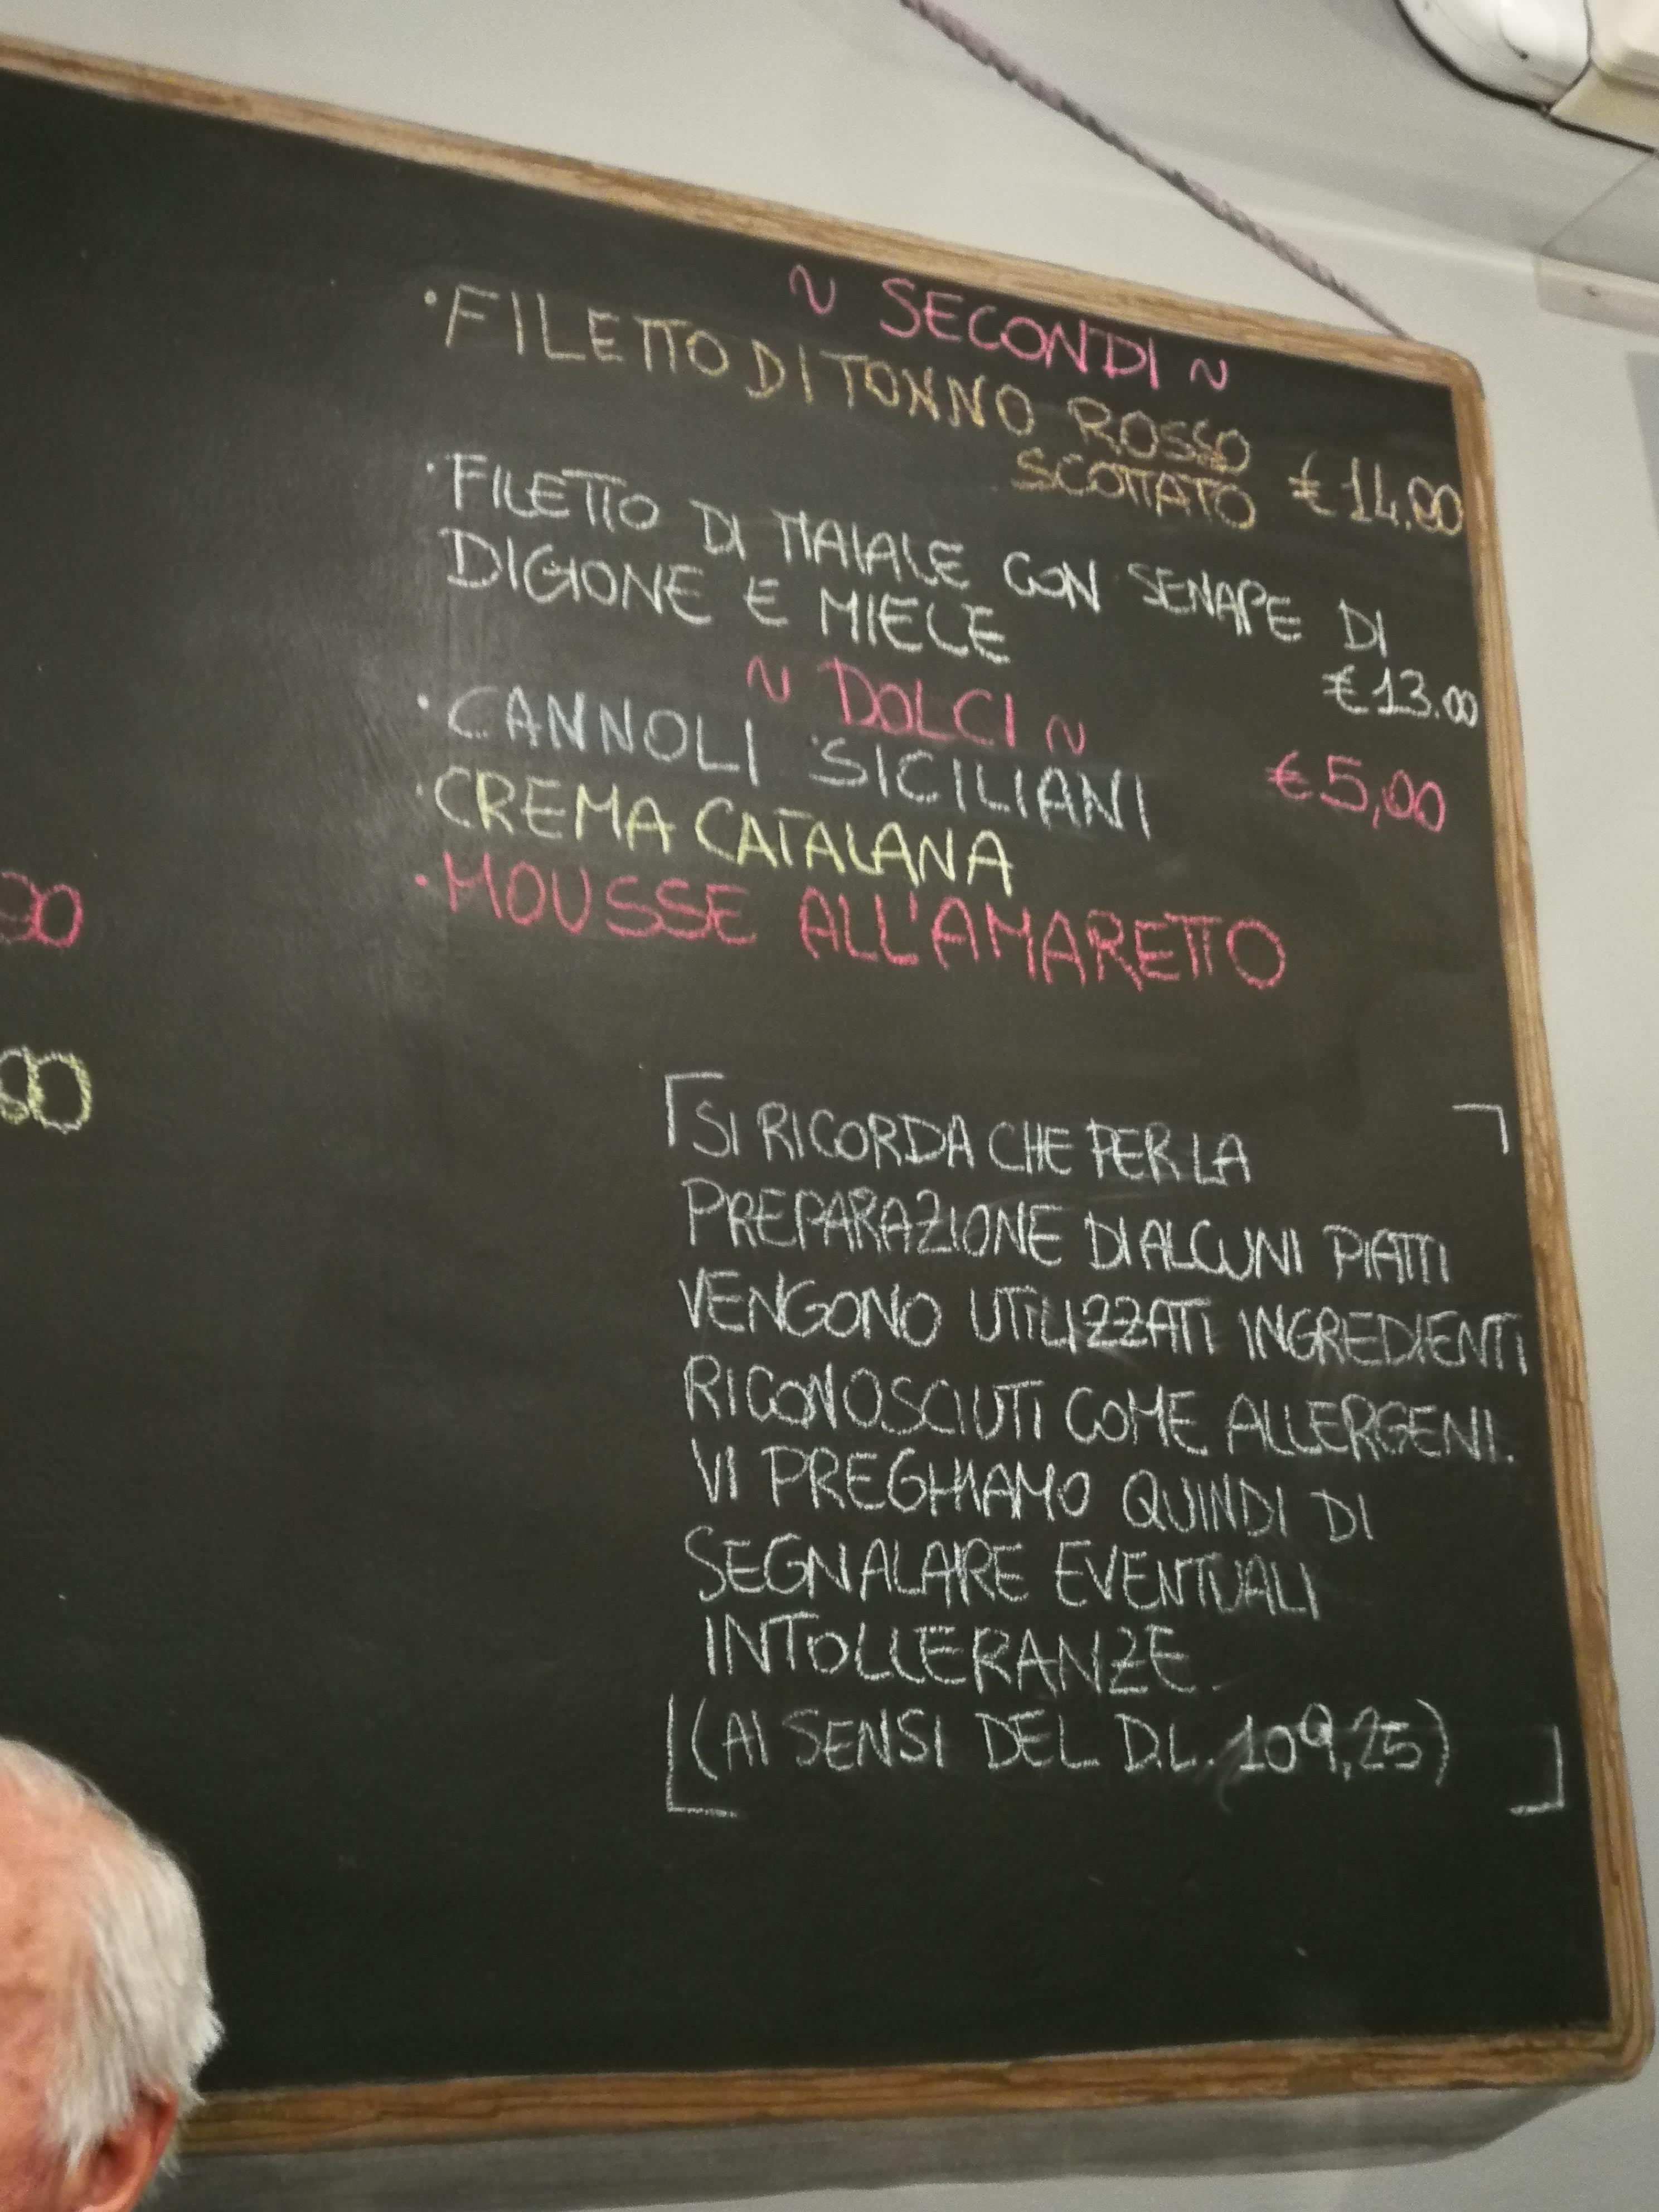 ~ SECONDI ~
• FILETTO DI TONNO ROSSO
SCOTTATO €14.00
• FILETTO DI MAIALE CON SENAPE DI
DIGIONE E MIELE
€13.00
~ DOLCI ~
• CANNOLI SICILIANI €5,00
• CREMA CATALANA
• MOUSSE ALL'AMARETTO
00
00
SI RICORDA CHE PER LA
PREPARAZIONE DI ALCUNI PIATTI
VENGONO UTILIZZATI INGREDIENTI
RICONOSCIUTI COME ALLERGENI.
VI PREGHIAMO QUINDI DI
SEGNALARE EVENTUALI
INTOLLERANZE.
(AI SENSI DEL D.L. 109,25)